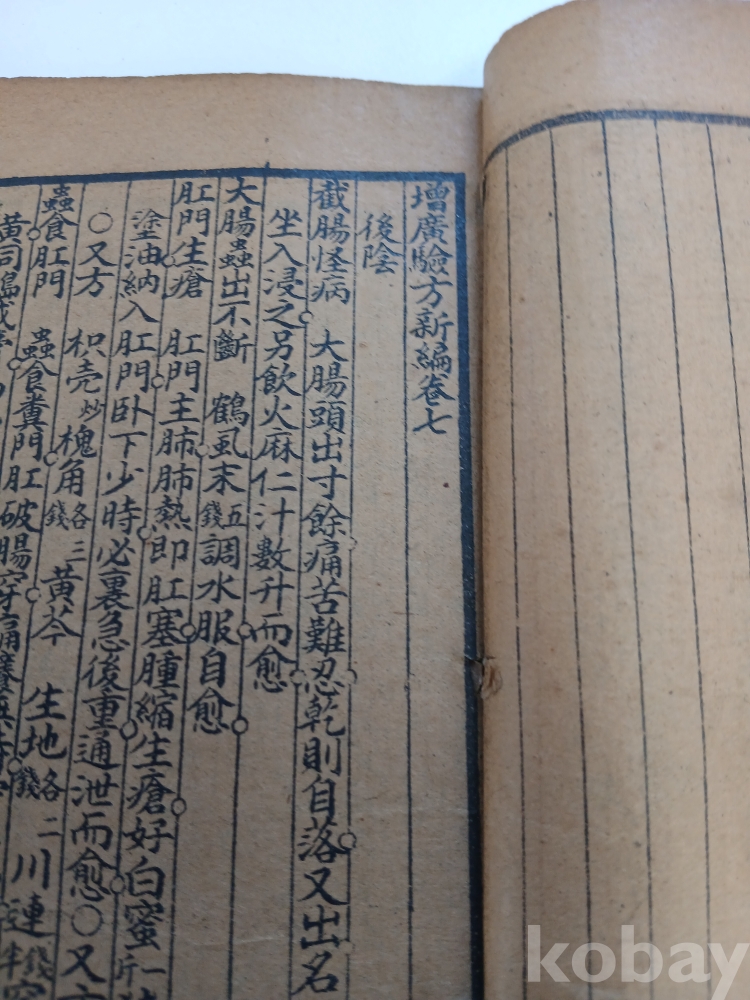 增廣驗方新編卷七
後陰
截腸怪病 大腸頭出寸餘痛苦難忍乾則自落又出名
坐入浸之另飲火麻仁汁數升而愈
大腸蟲出不斷 鶴虱末五錢調水服自愈
肛門生瘡 肛門主肺肺熱即肛塞腫縮生瘡好白蜜一
塗油納入肛門卧下少時必裏急後重通泄而愈○又
○又方 枳壳炒槐角各三錢黃芩 生地各二錢川連
蟲食肛門 蟲食糞門肛破腸穿痛癢
kobay